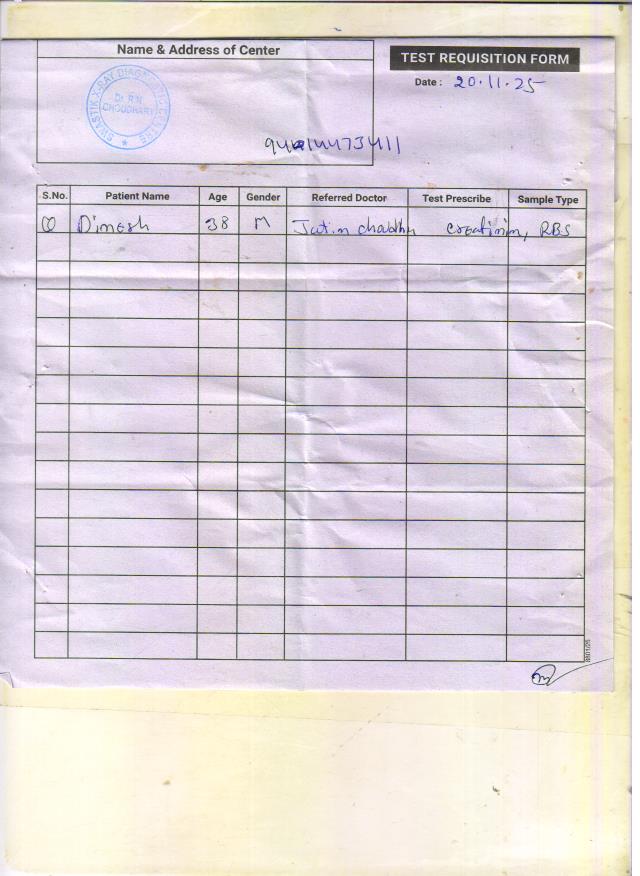 Name & Address of Center
TEST REQUISITION FORM
Date : 20.11.25
SWASTIK X-RAY DIAGNOSTIC CENTRE
Dr. R.N.
CHOUDHARY
S.No. Patient Name Age Gender Referred Doctor Test Prescribe Sample Type
Dimesh 38 M Jatin creatinin, RBS